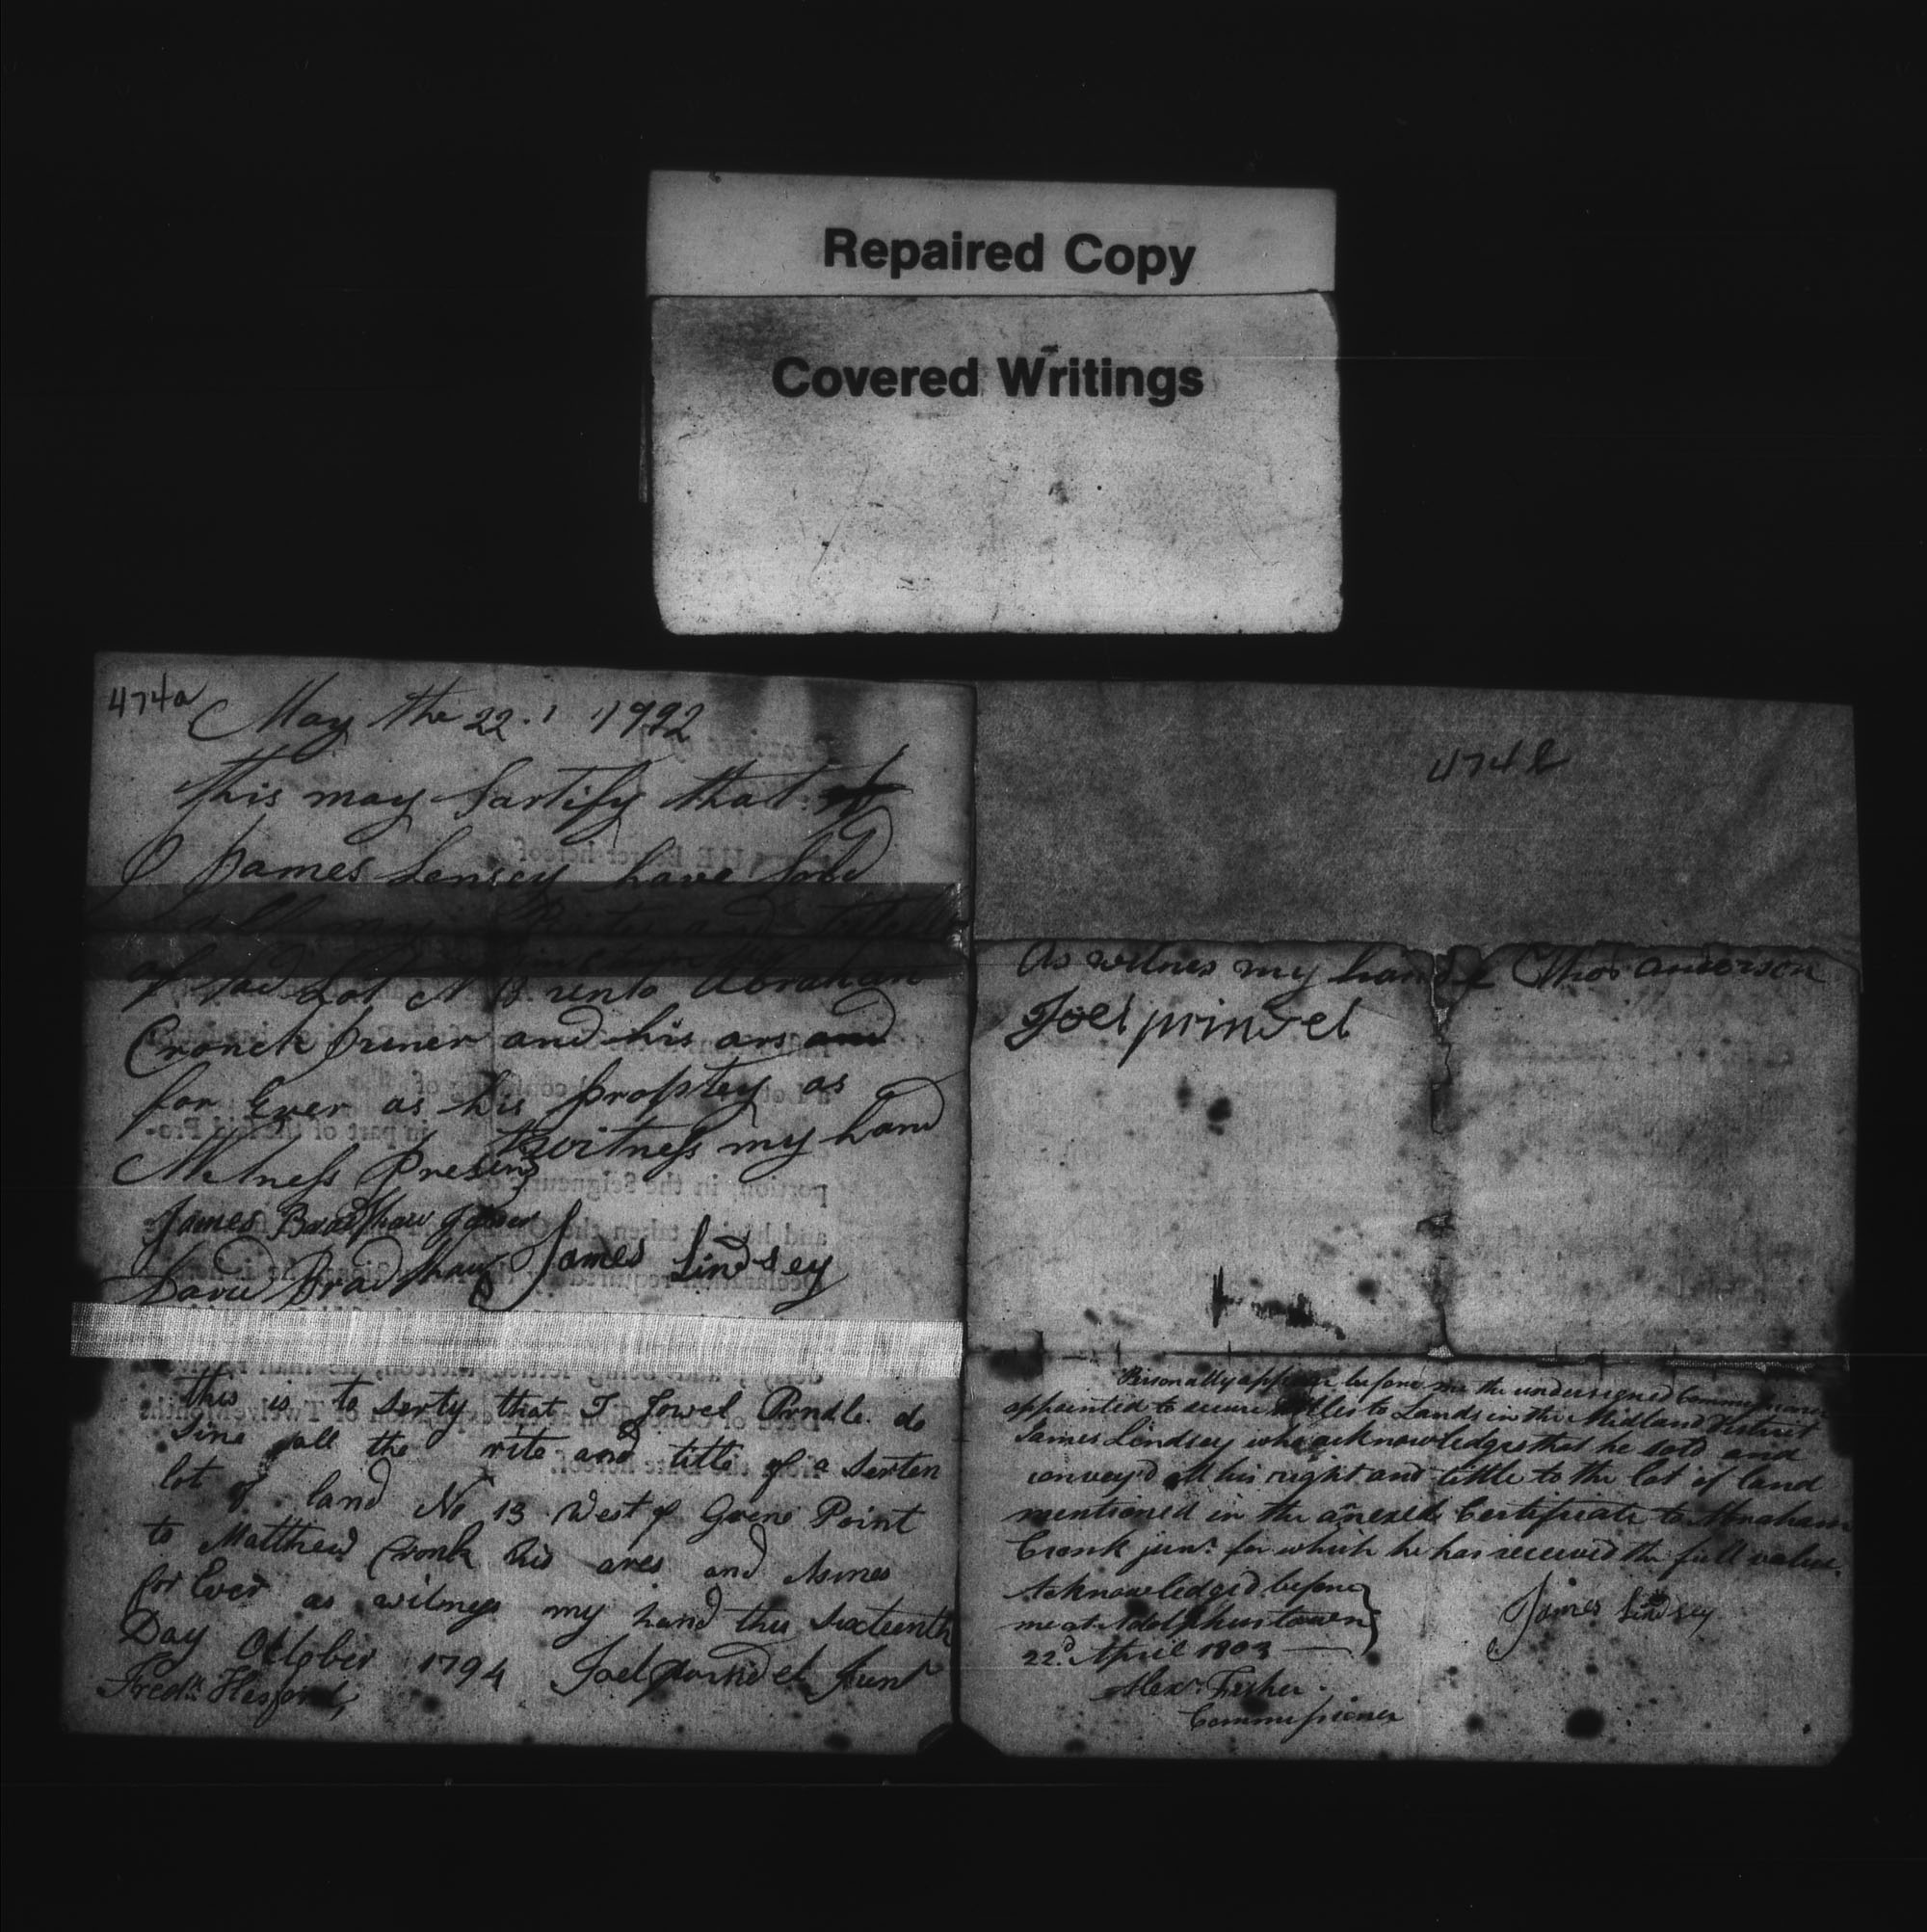 Repaired Copy
Covered Writings
474a
May the 22 1792
this may sartify that
I James Lensey have sold
all my Rite and titel
of sad Lot N 13 unto Abraham
Cronck juner and his ars and
for Ever as his proptey as
witness my hand
Witness Present
James Bradshaw
David Bradshaw James Lindsey
this is to serty that I Jowel Prndle do
sine all the rite and title of a serten
lot of land No 13 West of Grene Point
to Matthew Cronk his ares and asines
for Ever as witness my hand this sixteenth
Day October 1794 Joel prindel Junr
Fredk
474
As witnes my hand Thos anderson
Joel prindel
Personally appear before me the undersigned Commissioner
appointed to secure titles to Lands in the Midland District
James Lindsey who acknowledges that he sold and
convey'd all his right and tittle to the lot of land
mentioned in the anexed Certificate to Abraham
Cronk junr. for which he has received the full value.
Acknowledged before
me at Adolphustown
22d April 1803
James Lindsey
Alexr. Fisher
Commissioner